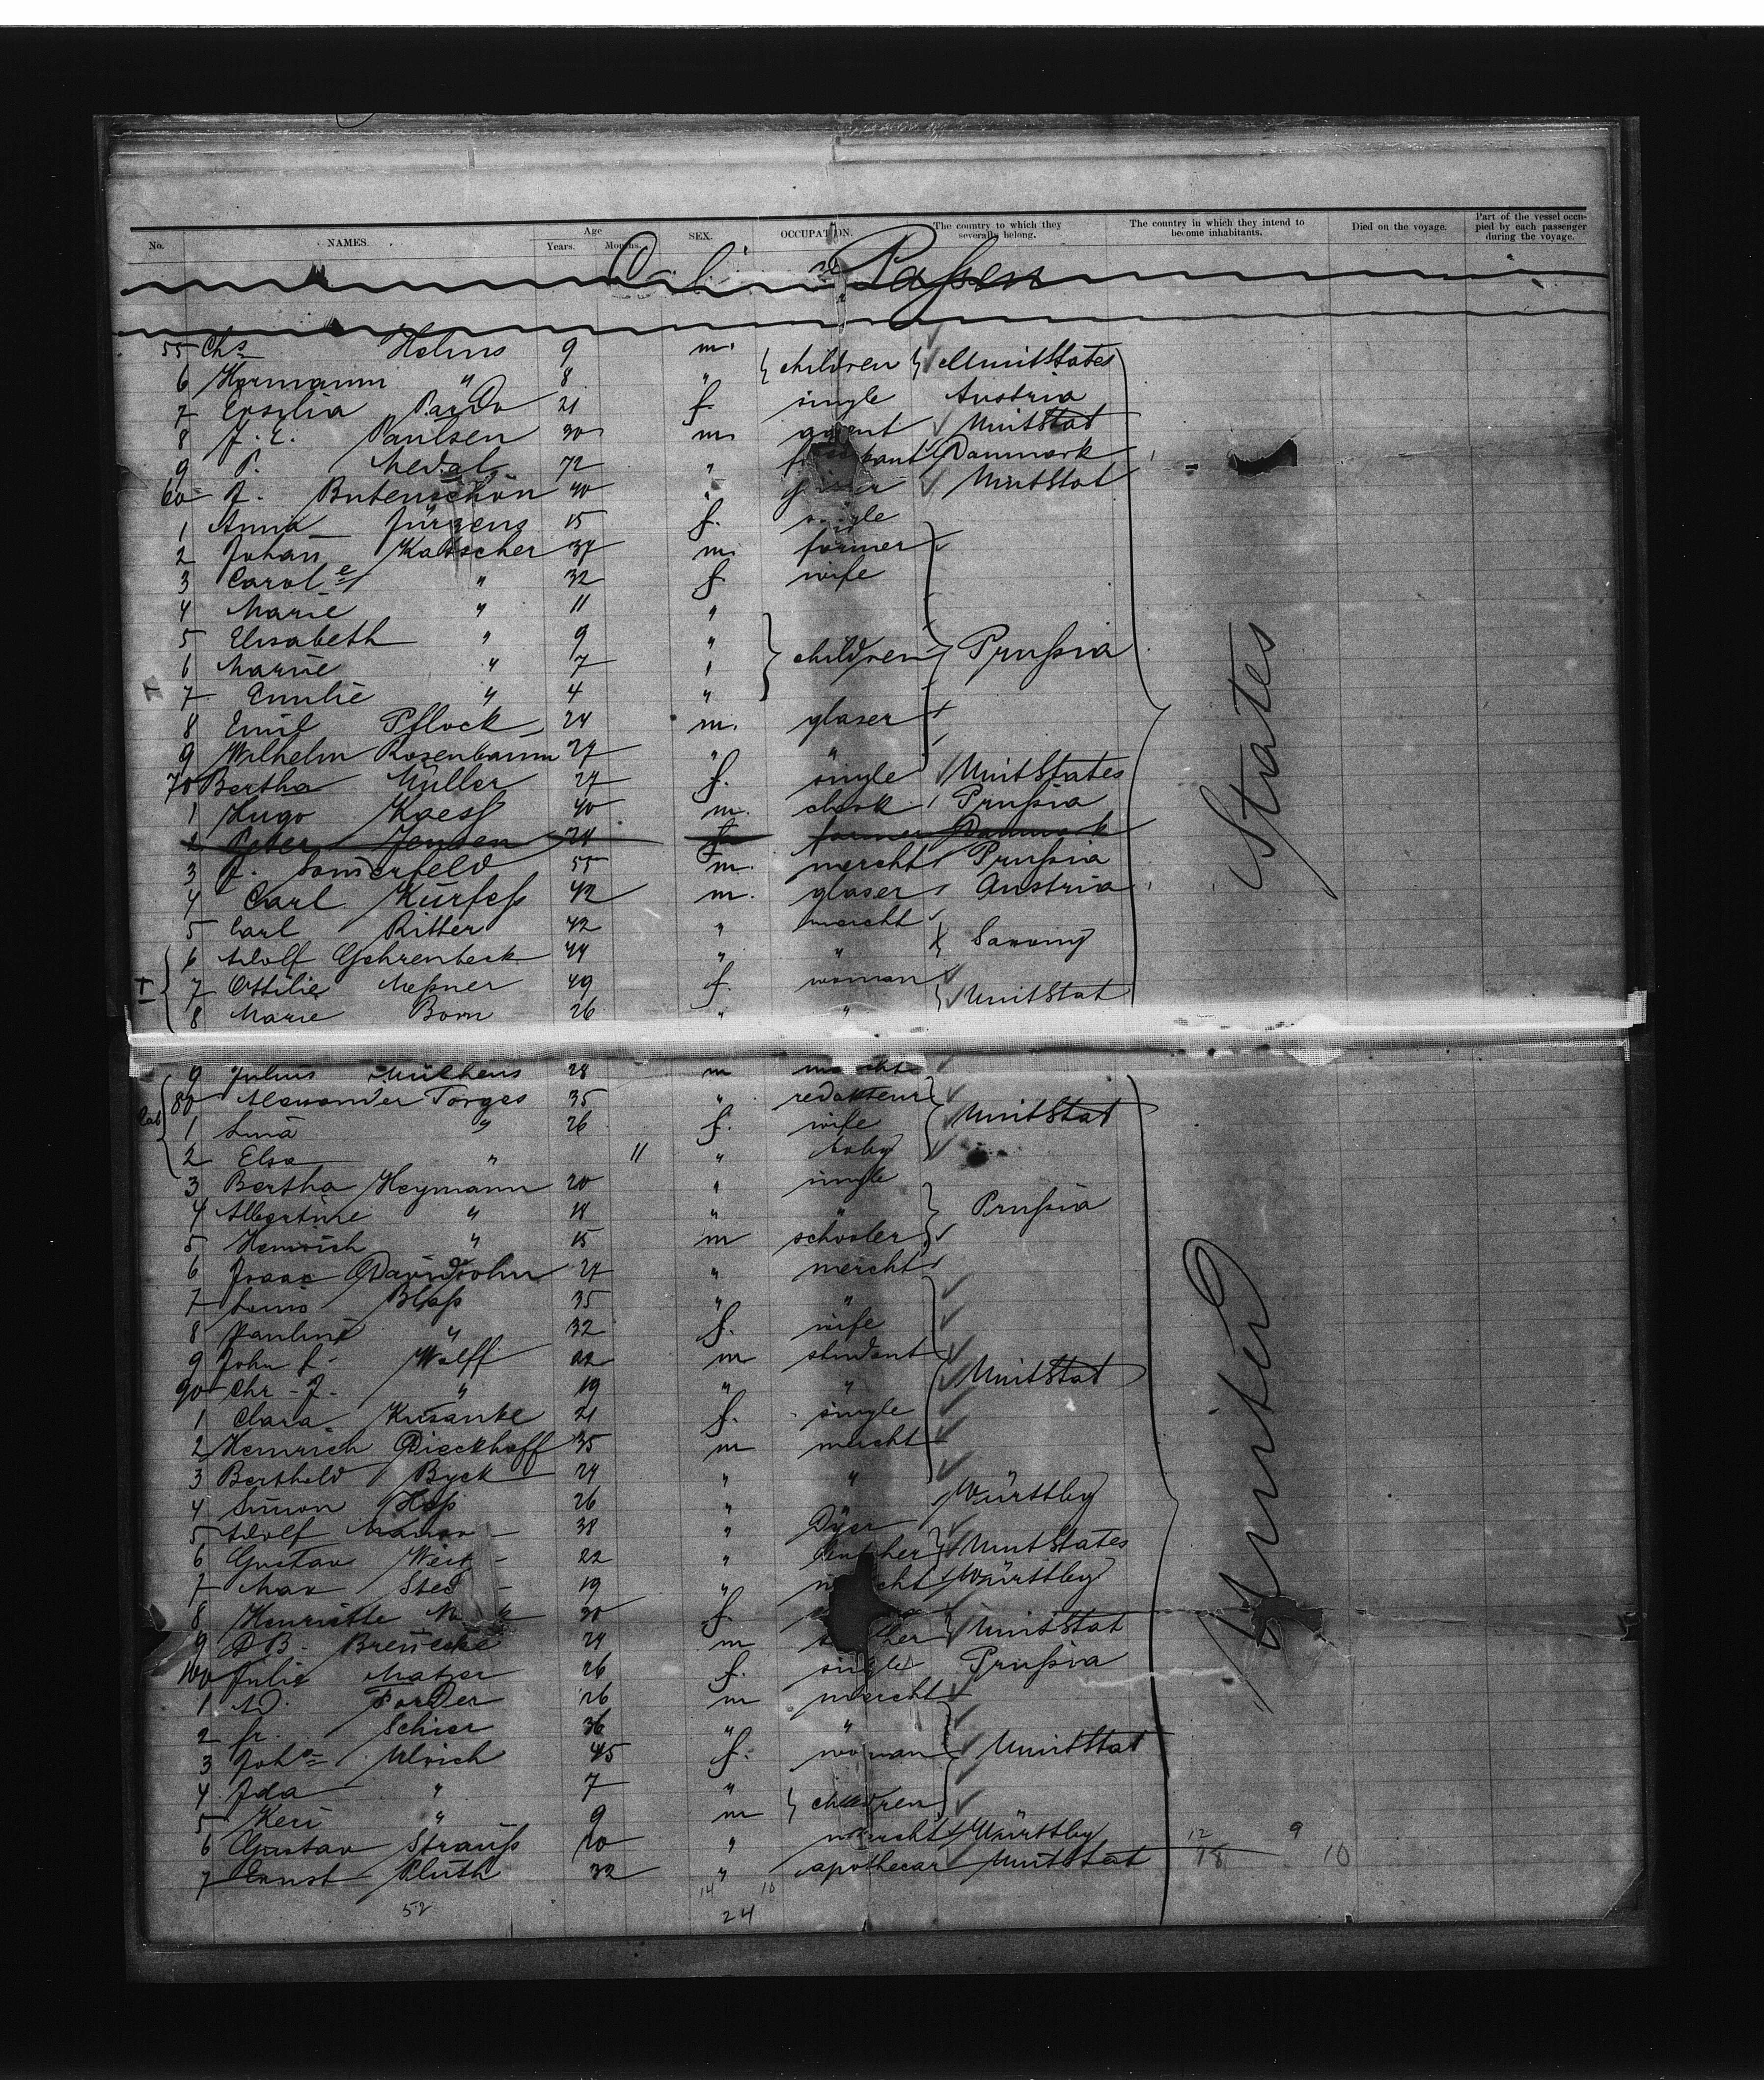 No. NAMES. Age Years. Months. SEX. OCCUPATION. The country to which they severally belong. The country in which they intend to become inhabitants. Died on the voyage. Part of the vessel occupied by each passenger during the voyage.
Paßen
55 Chs Helms 9 m.
6 Hermann " 8 " } children } UnitStates
7 Ersilia Pardo 21 f. single Austria
8 J. E. Paulsen 30 m. agent UnitStat
9 P. Medal 72 " Danmark
60 J. Butenschön 40 " UnitStat
1 Anna Jürgens 15 f. single
2 Johañ Katscher 37 m. farmer
3 Carole " 32 f. wife
4 Marie " 11 "
5 Elisabeth " 9 "
6 " 7 " } children Prußia
7 Emilie " 4 "
8 Emil Pflock 24 m. glaser
9 Wilhelm Rosenbaum 27 " "
70 Bertha Müller 27 f. single UnitStates
1 Hugo Kaess 40 m. clerk Prußia
2 Peter Jensen 24 farmer Danmark
3 J. Somerfeld 55 m. mercht Prußia
4 Carl Kürfeß 42 m. glaser Austria
5 Carl Ritter 42 " mercht
6 Adolf Gehrenbeck 44 " " } Saxony
7 Ottilie Meßner 49 f. woman
8 Marie Born 26 " " } UnitStat
9 Julius Mülhens 28 m
Cab
80 Alexander Torges 35 " redakteur
1 Lina " 26 f. wife UnitStat
2 Elsa " 11 " baby
3 Bertha Heymann 20 " single
4 Albertine " 18 " " Prußia
5 Heinrich " 15 m schooler
6 Isaac Davidsohn 27 " mercht
7 Louis Blaß 35 " "
8 Pauline " 32 f. wife
9 John f. Wolff 22 m student
90 Chr. J. " 19 " " UnitStat
1 Clara Krisanke 21 f. single
2 Heinrich Dieckhoff 35 m mercht
3 Berthold Byck 24 " "
4 Simon Heß 26 " " Württbg
5 Adolf 38 " Dyer
6 Gustav 22 " butcher } UnitStates
7 Max 19 " Württbg
8 Henriette 30 f.
9 D B. Brenecke 24 m } UnitStat
100 Julie Matzer 26 f. single Prußia
1 Ad. Forder 26 m mercht
2 fr. Schier 36 " "
3 Joha Ulrich 45 f. woman UnitStat
4 Ida " 7 "
5 " 9 m } children
6 Gustav Strauß 20 " mercht Württbg
7 Ernst Pluth 32 " apothecar UnitStat
United States
12 9
18 10
14 10
52 24